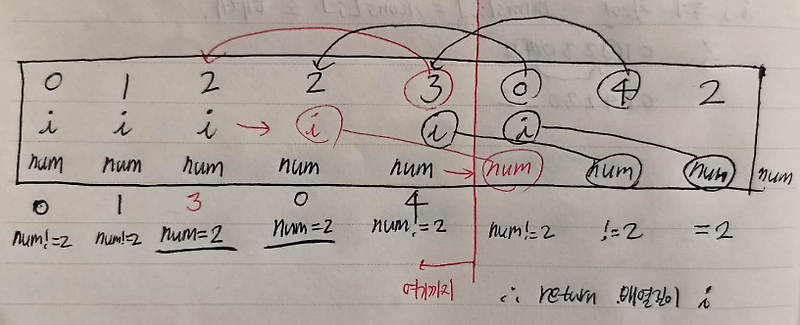 0 1 2 2 3 0 4 2
i i i → i i i
num num num num num → num num num num
0 1 3 0 4
num!=2 num!=2 num=2 num=2 num!=2 num!=2 !=2 =2
여기까지 ∴ return 배열길이 i